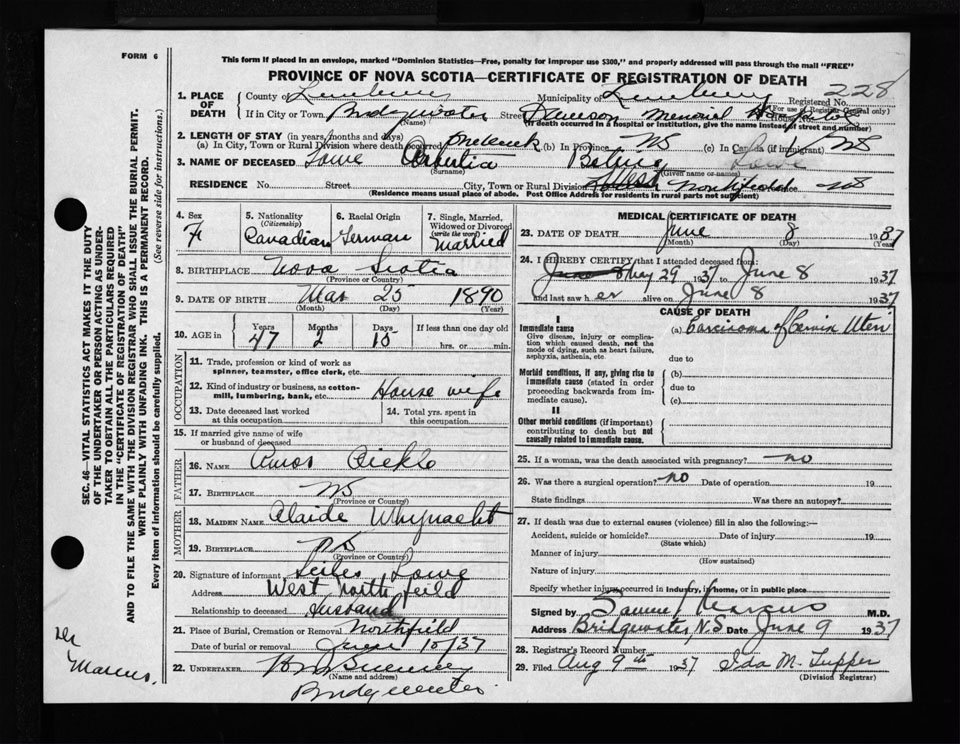 FORM 6
This form if placed in an envelope, marked "Dominion Statistics—Free, penalty for improper use $300," and properly addressed will pass through the mail "FREE"
PROVINCE OF NOVA SCOTIA—CERTIFICATE OF REGISTRATION OF DEATH
228
1. PLACE OF DEATH County of Lunenburg Municipality of Lunenburg Registered No.
(For use of Registrar General only)
If in City or Town Bridgewater Street Dawson Memorial Hospital House No.
(Name) (If death occurred in a hospital or institution, give the name instead of street and number)
2. LENGTH OF STAY (in years, months and days)
(a) In City, Town or Rural Division where death occurred (b) In Province NS (c) In Canada (if immigrant) NS
3. NAME OF DECEASED Lowe
(Surname) (Given name or names)
RESIDENCE No. Street City, Town or Rural Division West Northfield Province NS
(Residence means usual place of abode. Post Office Address for residents in rural parts not sufficient)
4. Sex F
5. Nationality (Citizenship) Canadian
6. Racial Origin German
7. Single, Married, Widowed or Divorced (write the word) Married
8. BIRTHPLACE Nova Scotia
(Province or Country)
9. DATE OF BIRTH Mar 25 1890
(Month) (Day) (Year)
10. AGE in Years 47 Months 2 Days 15 If less than one day old
hrs. or min.
OCCUPATION
11. Trade, profession or kind of work as spinner, teamster, office clerk, etc.
12. Kind of industry or business, as cotton-mill, lumbering, bank, etc. House wife
13. Date deceased last worked at this occupation
14. Total yrs. spent in this occupation
15. If married give name of wife or husband of deceased
FATHER
16. NAME Amos
17. BIRTHPLACE NS
(Province or Country)
MOTHER
18. MAIDEN NAME Alaide Whynacht
19. BIRTHPLACE NS
(Province or Country)
20. Signature of informant Lowe
Address West Northfeild
Relationship to deceased Husband
21. Place of Burial, Cremation or Removal Northfield
Date of burial or removal June 10/37
22. UNDERTAKER
(Name and address)
Bridgewater
MEDICAL CERTIFICATE OF DEATH
23. DATE OF DEATH June 8 1937
(Month) (Day) (Year)
24. I HEREBY CERTIFY that I attended deceased from:
May 29 1937 to June 8 1937
and last saw her alive on June 8 1937
CAUSE OF DEATH
I
Immediate cause
Give disease, injury or complication which caused death, not the mode of dying, such as heart failure, asphyxia, asthenia, etc.
(a) Carcinoma of Cervix Uteri
due to
Morbid conditions, if any, giving rise to immediate cause (stated in order proceeding backwards from immediate cause).
(b)
due to
(c)
II
Other morbid conditions (if important) contributing to death but not causally related to immediate cause.
25. If a woman, was the death associated with pregnancy? no
26. Was there a surgical operation? no Date of operation 19
State findings Was there an autopsy?
27. If death was due to external causes (violence) fill in also the following:—
Accident, suicide or homicide? Date of injury 19
(State which)
Manner of injury
(How sustained)
Nature of injury
Specify whether injury occurred in industry, in home, or in public place
Signed by Samuel Marcus M.D.
Address Bridgewater, N.S Date June 9 1937
28. Registrar's Record Number
29. Filed Aug 9th 1937 Ida M. Tupper
(Division Registrar)
SEC. 46—VITAL STATISTICS ACT MAKES IT THE DUTY
OF THE UNDERTAKER OR PERSON ACTING AS UNDER-
TAKER TO OBTAIN ALL THE PARTICULARS REQUIRED
IN THE "CERTIFICATE OF REGISTRATION OF DEATH"
AND TO FILE THE SAME WITH THE DIVISION REGISTRAR WHO SHALL ISSUE THE BURIAL PERMIT.
WRITE PLAINLY WITH UNFADING INK. THIS IS A PERMANENT RECORD.
Every item of information should be carefully supplied. (See reverse side for instructions.)
Dr
Marcus.